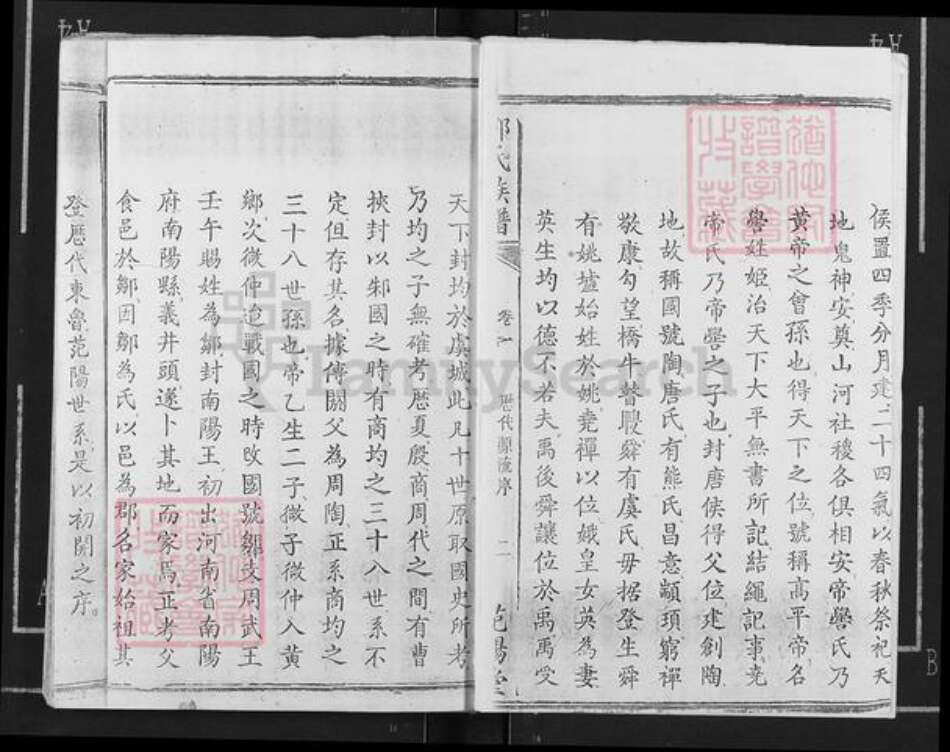 侯置四季分月建二十四氣以春秋祭祀天
地鬼神安奠山河社稷各俱相安帝嚳氏乃
黃帝之曾孫也得天下之位號稱高平帝名
嚳姓姬治天下大平無書所記結繩記事堯
帝氏乃帝嚳之子也封唐侯得父位建創陶
地故稱國號陶唐氏有熊氏昌意顓頊窮禪
敬康勾望橋牛瞽瞍舜有虞氏毋据登生舜
有姚墟始姓於姚堯禪以位娥皇女英為妻
英生均以德不若夫禹後舜讓位於禹禹受
氏族譜
卷一
歷代源流序
二
范陽堂
天下封均於虞城此凡十世原取國史所考
乃均之子無確考歷夏殷商周代之間有曹
挾封以邾國之時有商均之三十八世系不
定但存其名據傳關父為周陶正系商均之
三十八世孫也帝乙生二子微子微仲入黃
鄉次微仲迨戰國之時改國號鄒支周武王
壬午賜姓為鄒封南陽王初出河南省南陽
府南陽縣義井頭遂卜其地而家焉正考父
食邑於鄒因鄒為氏以邑為郡名家始祖其
登歷代東魯范陽世系是以初開之序
FamilySearch